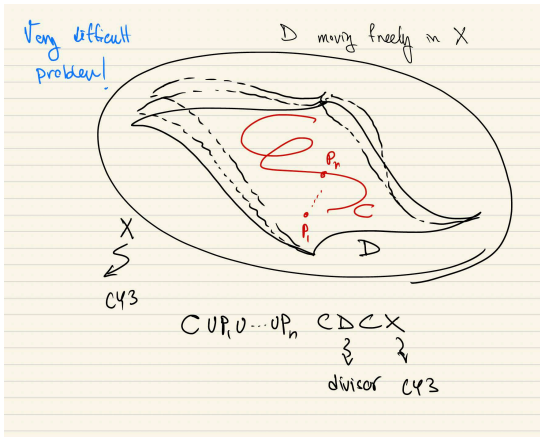 Very difficult
problem!
D moving freely in X
Pn
P1
C
D
X
CY3
C ∪ P1 ∪ ··· ∪ Pn ⊂ D ⊂ X
divisor CY3